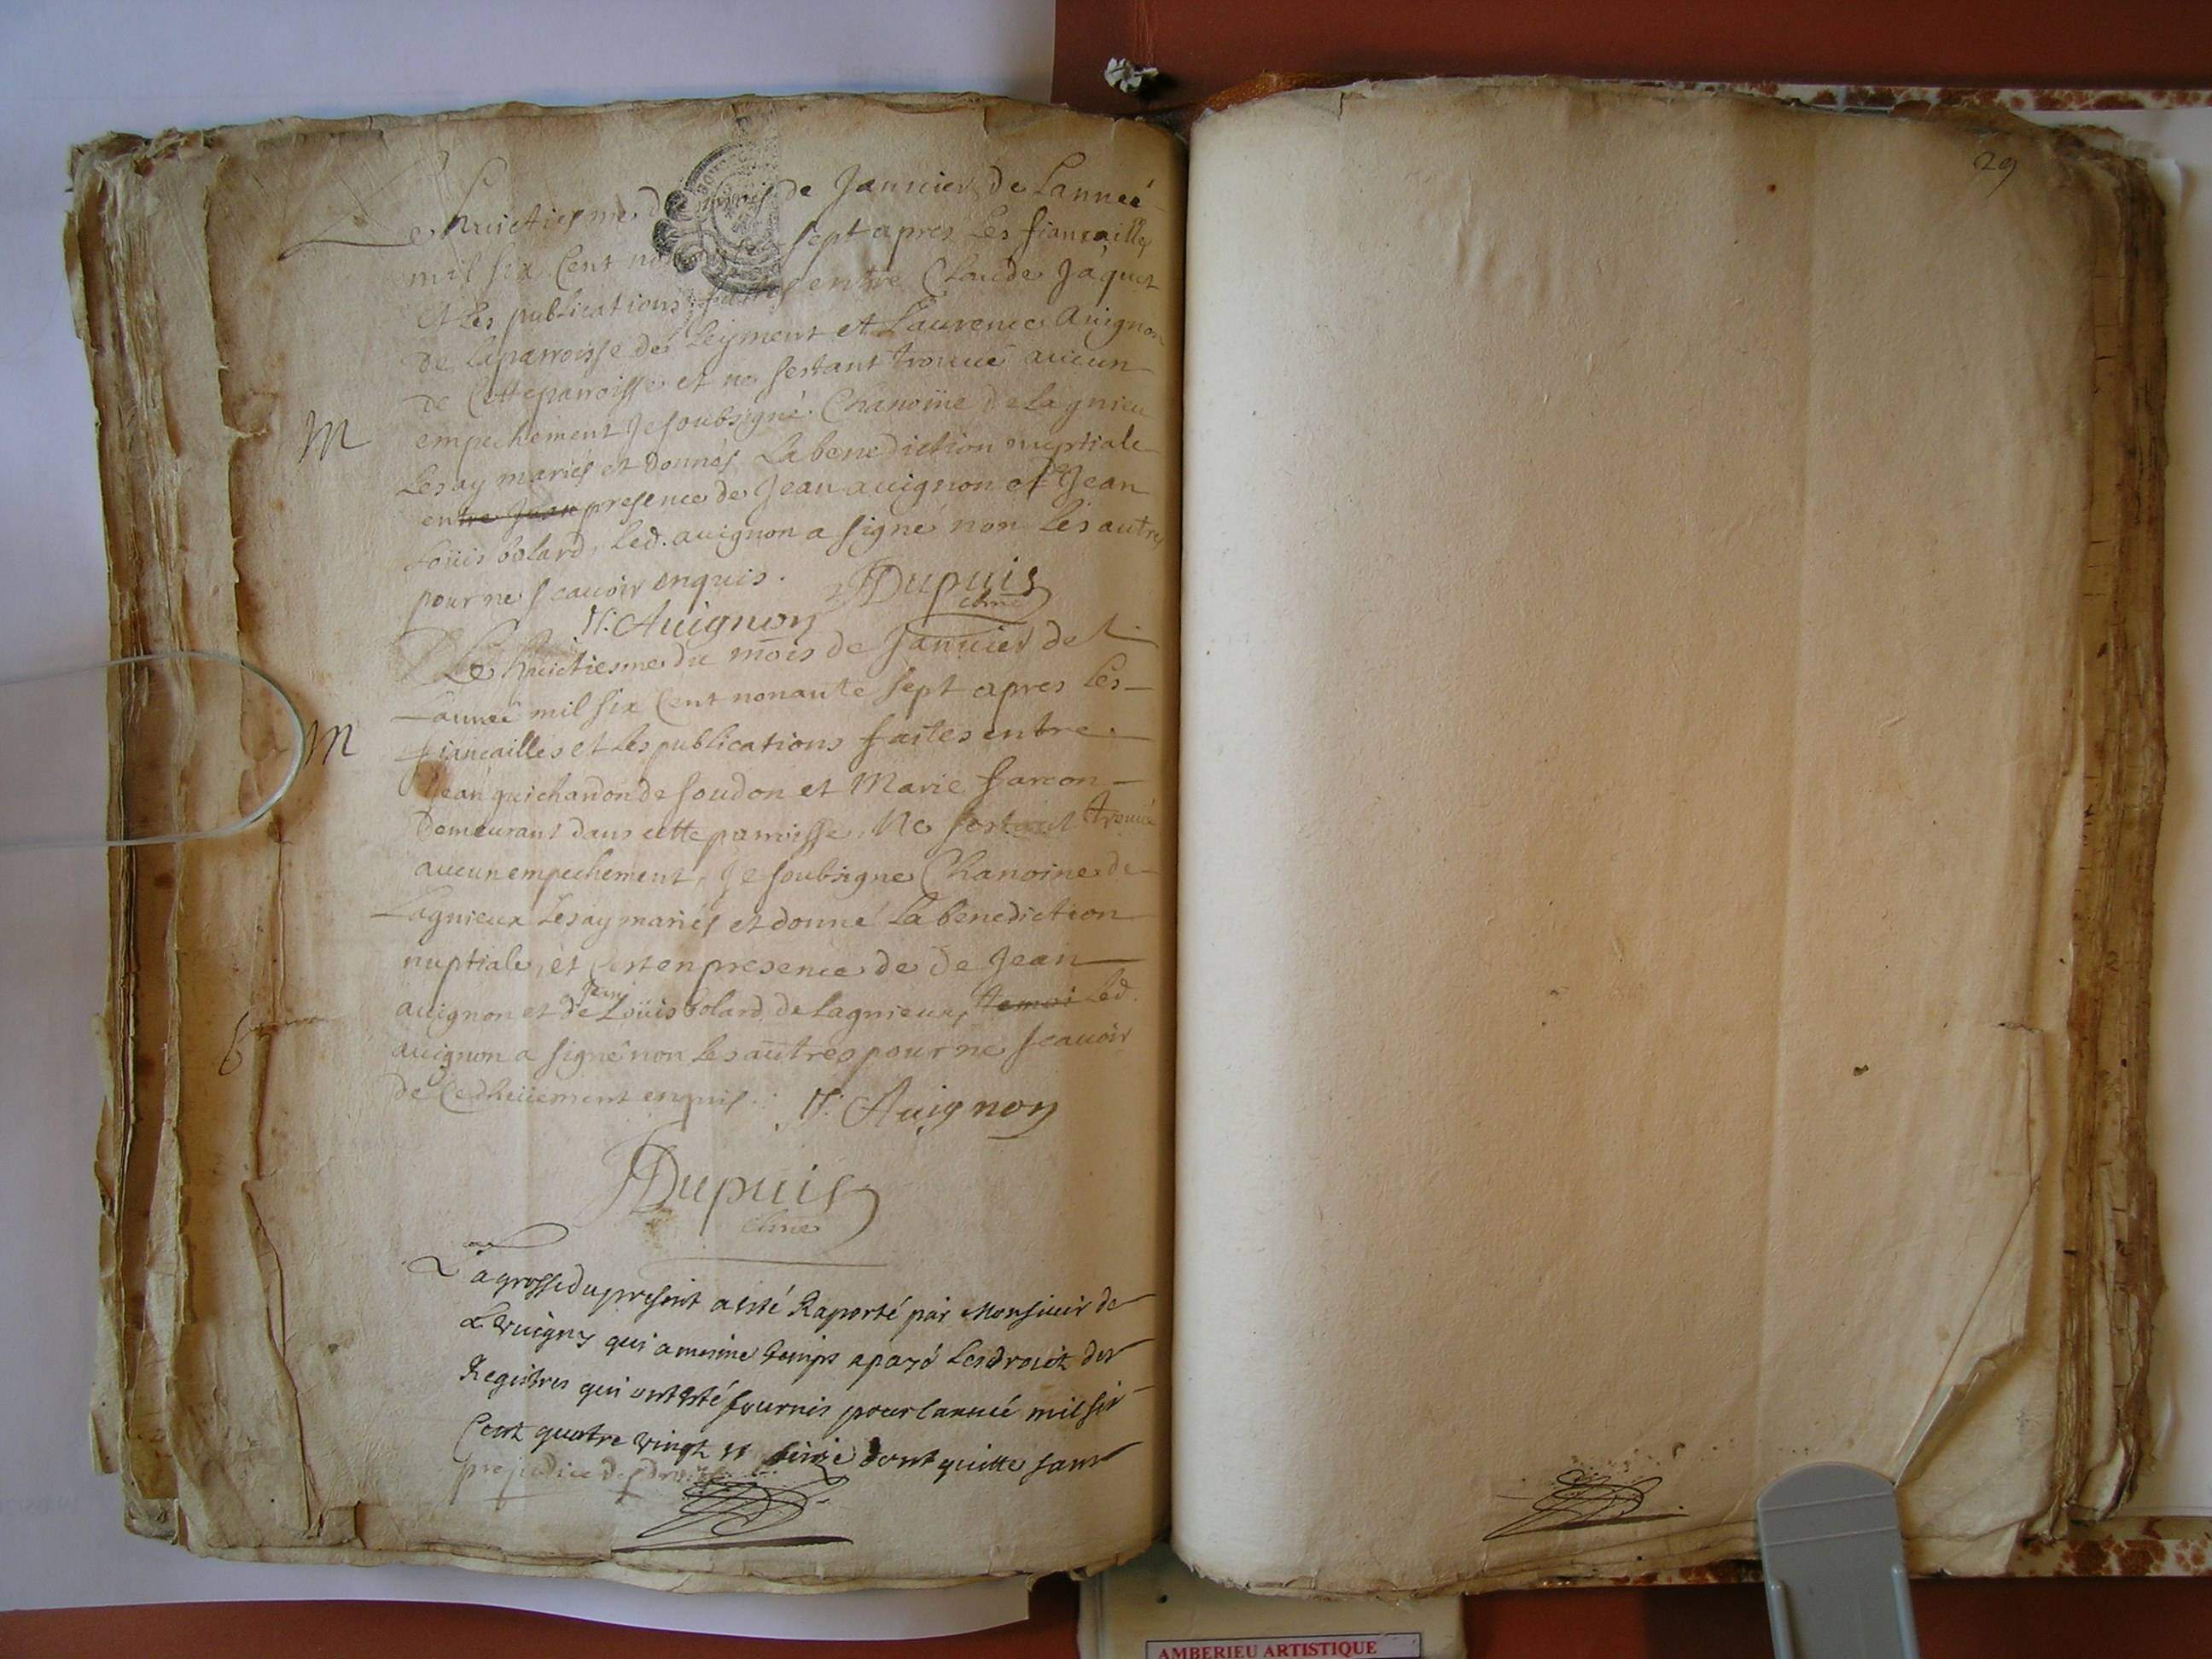 Le huictiesme du mois de Januier de Lanneé
mil six Cent nonante sept apres Les fiançailles
et Les publications faites entre Claude Jaquet
de laparroisse de Leyment et Laurence Auignon
de Cette parroisse et ne sestant trouué aucun
empechement Je soubsigné Chanoine de Lagnieu
M
Les ay mariés et donnés La benediction nuptiale
entre Jean presence de Jean auignon et de Jean
Loüis bolard, Led. auignon a signé non Les autres
pour ne scauoir enquis. Dupuis
chne
Auignon
Le huictiesme du mois de Januier de
Lanneé mil six Cent nonante sept apres Les
M
fiancailles et Les publications faites entre
Jean guichardon de soudon et Marie farcon
Demeurant dans cette parroisse, Ne sestant trouué
aucun empechement, Je soubsigne Chanoine de
Lagnieux Les ay mariés et donné La benediction
nuptiale, et cest en presence de de Jean
Jean
auignon et de Loüis bolard de Lagnieux, temoi Led.
auignon a signé non Les autres pour ne scauoir
de Ce enquis. Auignon
Dupuis
chne
La grosse du present a esté Raporté par Monsieur de
qui a mesme temps a payé Les droict des
Registres qui ont esté fournis pour lanneé mil six
Cent quatre vingt seize dont quitte sans
prejudice des
29
AMBERIEU ARTISTIQUE